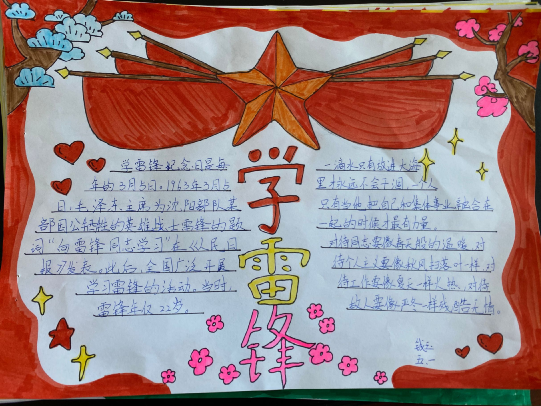 学雷锋
学雷锋纪念日是每
年的3月5日。1963年3月5
日,毛泽东主席为沈阳部队某
部因公牺牲的英雄战士雷锋的题
词“向雷锋同志学习”在《人民日
报》发表。此后,全国广泛开展
学习雷锋的活动。当时,
雷锋年仅22岁。
一滴水只有放进大海
里才永远不会干涸,一个人
只有当他把自己和集体事业融合在
一起的时候才最有力量。
对待同志要像春天般的温暖,对
待个人主义要像秋风扫落叶一样,对
待工作要像夏天一样火热,对待
敌人要像严冬一样残酷无情。
五.一